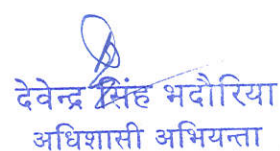 देवेन्द्र सिंह भदौरिया
अधिशासी अभियन्ता